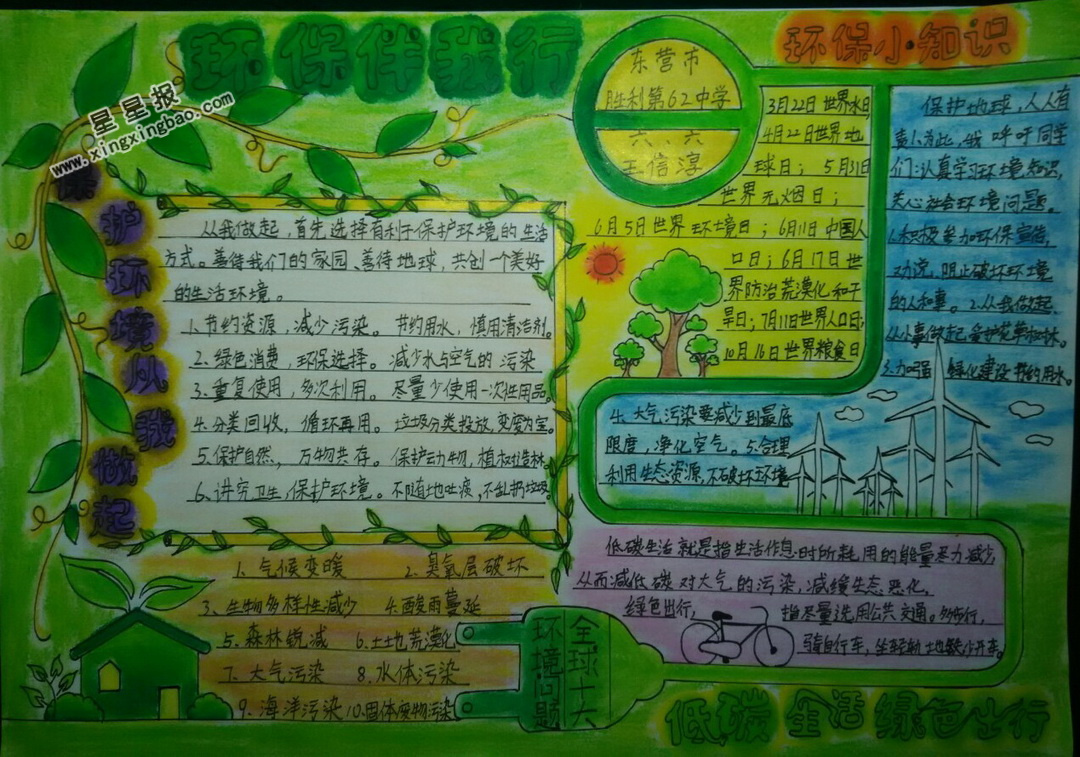 环保伴我行
环保小知识
星星报
www.xingxingbao.com
东营市
胜利第62中学
六、六
王信淳
爱护环境从我做起
从我做起,首先选择有利于保护环境的生活
方式。善待我们的家园、善待地球,共创一个美好
的生活环境。
1.节约资源,减少污染。节约用水,慎用清洁剂。
2.绿色消费,环保选择。减少水与空气的污染
3.重复使用,多次利用。尽量少使用一次性用品。
4.分类回收,循环再用。垃圾分类投放,变废为宝。
5.保护自然,万物共存。保护动物,植树造林
6.讲究卫生,保护环境。不随地吐痰,不乱扔垃圾
3月22日世界水日
4月22日世界地
球日;5月31日
世界无烟日;
6月5日世界环境日;6月11日中国人
口日;6月17日世
界防治荒漠化和干
旱日;7月11日世界人口日;
10月16日世界粮食日
保护地球,人人有
责,为此,我呼吁同学
们:认真学习环境知识,
关心社会环境问题。
1.积极参加环保宣传,
劝说,阻止破坏环境
的人和事。2.从我做起,
从小事做起,爱护花草树林。
3.加强绿化建设,节约用水。
4.大气污染要减少到最底
限度,净化空气。5.合理
利用生态资源,不破坏环境
低碳生活就是指生活作息时所耗用的能量尽力减少,
从而减低碳对大气的污染,减缓生态恶化,
绿色出行,指尽量选用公共交通。多步行,
骑自行车,坐轻轨地铁,少开车。
1、气候变暖 2、臭氧层破坏
3、生物多样性减少 4、酸雨蔓延
5、森林锐减 6、土地荒漠化
7、大气污染 8、水体污染
9、海洋污染 10.固体废物污染
全球十大
环境问题
低碳生活 绿色出行